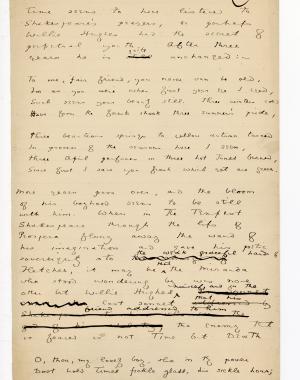 Time seems to have listened to
Shakespeare's prayers, or perhaps
Willie Hughes had the secret of
perpetual youth. After three
years he is quite unchanged:—
To me, fair friend, you never can be old,
For as you were when first your eye I eyed,
Such seems your beauty still. Three winters cold
Have from the forests shook three summers' pride,
Three beauteous springs to yellow autumn turned
In process of the seasons have I seen,
Three April perfumes in three hot Junes burned,
Since first I saw you fresh which yet are green.
More years pass over, and the bloom
of his boyhood seems to be still
with him. When, in The Tempest
Shakespeare, through the lips of
Prospero flung away the wand of
his imagination and gave his poetic
sovereignty into the weak graceful hands of
Fletcher, it may be the Miranda
who stood wondering by was none
other but Willie Hughes
last sonnet
friend addressed to him the
the enemy that
is feared is not Time but Death
O, thou, my lovely boy, who in thy power
Dost hold Time's fickle glass, his sickle, hour;